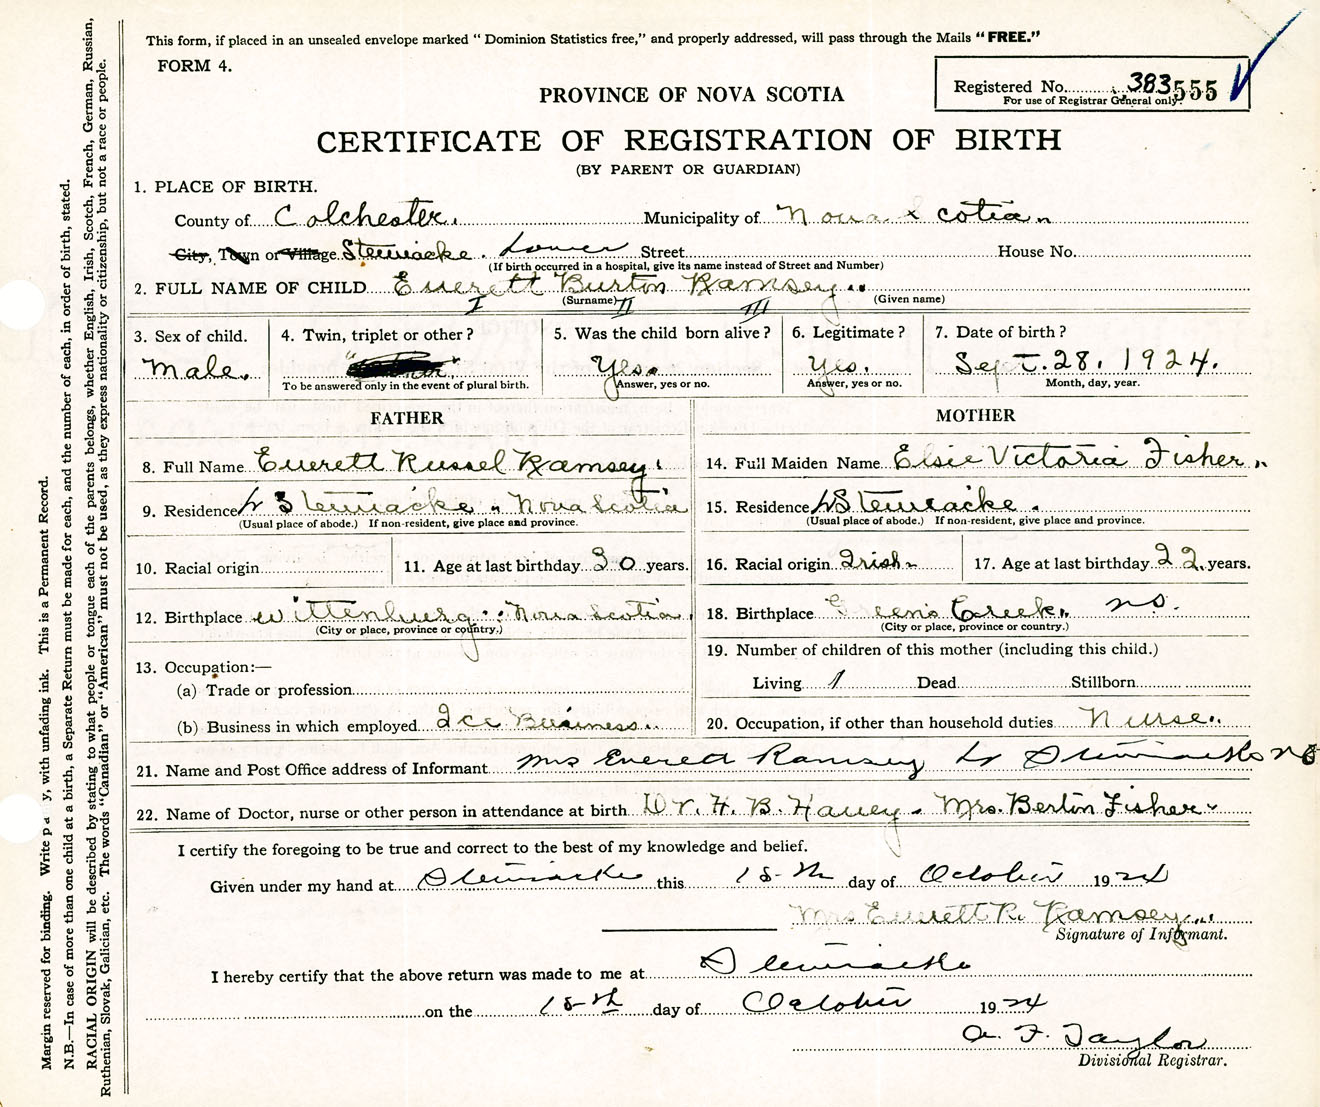 This form, if placed in an unsealed envelope marked " Dominion Statistics free," and properly addressed, will pass through the Mails "FREE."
FORM 4.
Registered No. 383555
For use of Registrar General only.
PROVINCE OF NOVA SCOTIA
CERTIFICATE OF REGISTRATION OF BIRTH
(BY PARENT OR GUARDIAN)
1. PLACE OF BIRTH.
County of Colchester. Municipality of Nova Scotia
City, Town or Village Stewiacke. Lower Street House No.
(If birth occurred in a hospital, give its name instead of Street and Number)
2. FULL NAME OF CHILD Everett Burton Ramsey
(Surname) (Given name)
I II III
3. Sex of child. 4. Twin, triplet or other? 5. Was the child born alive? 6. Legitimate? 7. Date of birth?
Male. Yes. Yes. Sept. 28. 1924.
To be answered only in the event of plural birth. Answer, yes or no. Answer, yes or no. Month, day, year.
FATHER MOTHER
8. Full Name Everett Russel Ramsey. 14. Full Maiden Name Elsie Victoria Fisher
9. Residence L Stewiacke Nova Scotia 15. Residence L Stewiacke.
(Usual place of abode.) If non-resident, give place and province. (Usual place of abode.) If non-resident, give place and province.
10. Racial origin 11. Age at last birthday 30 years. 16. Racial origin Irish 17. Age at last birthday 22 years.
12. Birthplace Wittenburg Nova Scotia 18. Birthplace Greens Creek NS.
(City or place, province or country.) (City or place, province or country.)
13. Occupation:— 19. Number of children of this mother (including this child.)
(a) Trade or profession Living 1 Dead Stillborn
(b) Business in which employed Ice Business 20. Occupation, if other than household duties Nurse
21. Name and Post Office address of Informant Mrs Everett Ramsey Lr Stewiacke NS
22. Name of Doctor, nurse or other person in attendance at birth Dr. H. B. Havey Mrs. Bertin Fisher
I certify the foregoing to be true and correct to the best of my knowledge and belief.
Given under my hand at Stewiacke this 18th day of October 1924
Mrs Everett R. Ramsey
Signature of Informant.
I hereby certify that the above return was made to me at Stewiacke
on the 18th day of October 1924
A. F. Taylor
Divisional Registrar.
Margin reserved for binding. Write p y, with unfading ink. This is a Permanent Record.
N.B.—In case of more than one child at a birth, a Separate Return must be made for each, and the number of each, in order of birth, stated.
RACIAL ORIGIN will be described by stating to what people or tongue each of the parents belongs, whether English, Irish, Scotch, French, German, Russian,
Ruthenian, Slovak, Galician, etc. The words "Canadian" or "American" must not be used, as they express nationality or citizenship, but not a race or people.